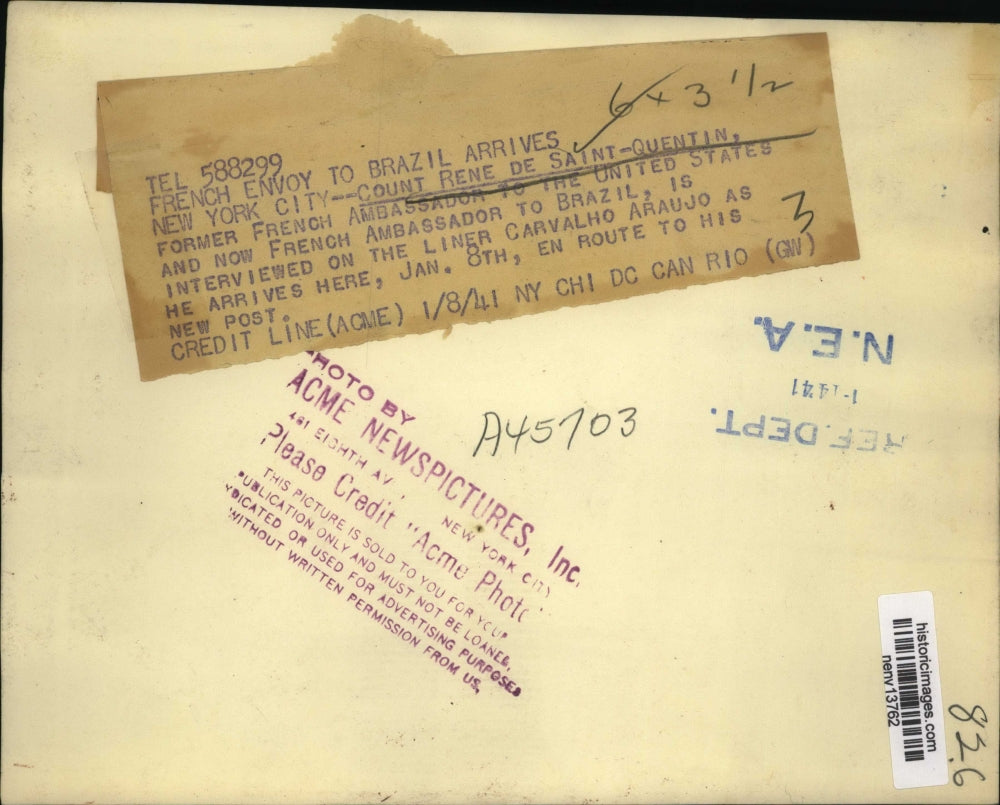 6 x 3 1/2
TEL 588299
FRENCH ENVOY TO BRAZIL ARRIVES
NEW YORK CITY--COUNT RENE DE SAINT-QUENTIN,
FORMER FRENCH AMBASSADOR TO THE UNITED STATES
AND NOW FRENCH AMBASSADOR TO BRAZIL, IS
INTERVIEWED ON THE LINER CARVALHO ARAUJO AS
HE ARRIVES HERE, JAN. 8TH, EN ROUTE TO HIS
NEW POST.
CREDIT LINE (ACME) 1/8/41 NY CHI DC CAN RIO (GW)
3
PHOTO BY
ACME NEWSPICTURES, Inc.
461 EIGHTH AV. NEW YORK CITY
Please Credit "Acme Photo"
THIS PICTURE IS SOLD TO YOU FOR YOUR
PUBLICATION ONLY AND MUST NOT BE LOANED,
SYNDICATED OR USED FOR ADVERTISING PURPOSES
WITHOUT WRITTEN PERMISSION FROM US.
A45703
REF. DEPT.
N.E.A.
historicimages.com
nenv13762
836